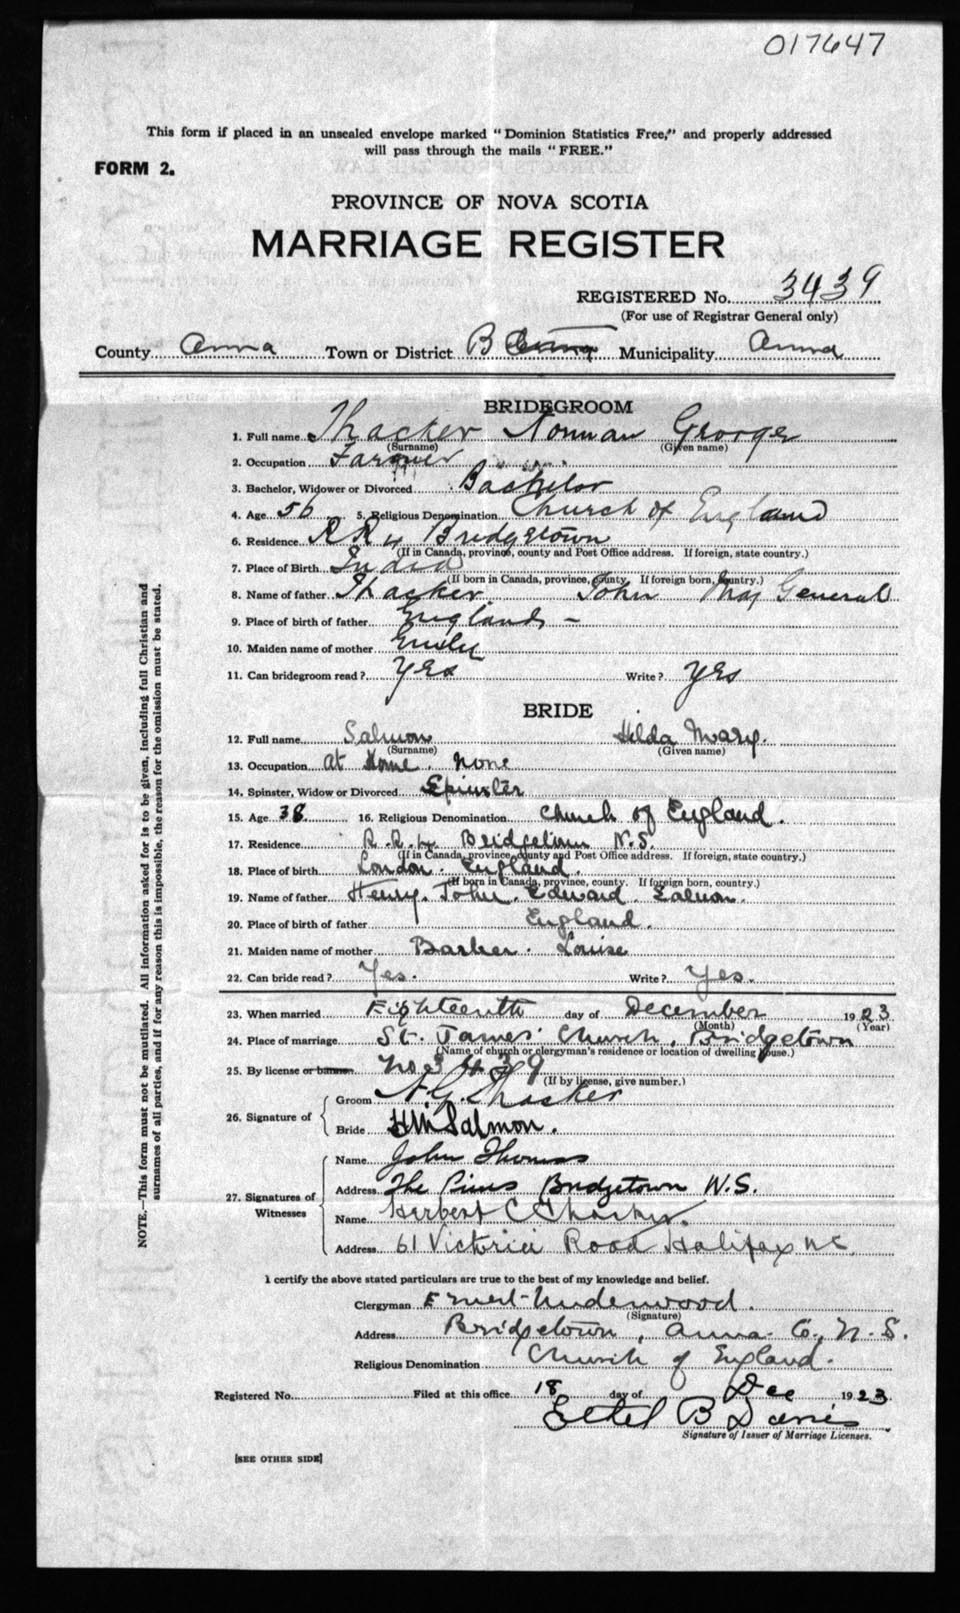 017647
This form if placed in an unsealed envelope marked "Dominion Statistics Free," and properly addressed
will pass through the mails "FREE."
FORM 2.
PROVINCE OF NOVA SCOTIA
MARRIAGE REGISTER
REGISTERED No. 3439
(For use of Registrar General only)
County Anna Town or District B Municipality Anna
BRIDEGROOM
1. Full name Thacker Norman George
(Surname) (Given name)
2. Occupation Farmer
3. Bachelor, Widower or Divorced Bachelor
4. Age 56 5. Religious Denomination Church of England
6. Residence R R 4 Bridgetown
(If in Canada, province, county and Post Office address. If foreign, state country.)
7. Place of Birth India
(If born in Canada, province, county. If foreign born, country.)
8. Name of father Thacker John Maj General
9. Place of birth of father England -
10. Maiden name of mother
11. Can bridegroom read? Yes Write? Yes
BRIDE
12. Full name Salmon Hilda Mary.
(Surname) (Given name)
13. Occupation at Home. None
14. Spinster, Widow or Divorced Spinster
15. Age 38 16. Religious Denomination Church of England.
17. Residence R.R.4 Bridgetown N.S.
(If in Canada, province, county and Post Office address. If foreign, state country.)
18. Place of birth London. England.
(If born in Canada, province, county. If foreign born, country.)
19. Name of father Henry. John. Edward. Salmon.
20. Place of birth of father England.
21. Maiden name of mother Barker. Louise
22. Can bride read? Yes. Write? Yes.
23. When married Eighteenth day of December 1923
(Month) (Year)
24. Place of marriage St. James' Church, Bridgetown
(Name of church or clergyman's residence or location of dwelling house.)
25. By license or banns No 3439
(If by license, give number.)
26. Signature of
Groom N.G. Thacker
Bride H M Salmon.
27. Signatures of Witnesses
Name John Thomas
Address The Pines Bridgetown N.S.
Name Herbert C Thacker.
Address 61 Victoria Road Halifax NS.
I certify the above stated particulars are true to the best of my knowledge and belief.
Clergyman E Underwood.
(Signature)
Address Bridgetown, Anna. Co., N.S.
Religious Denomination Church of England.
Registered No. Filed at this office 18 day of Dec 1923
Ethel B Davis
Signature of Issuer of Marriage Licenses.
[SEE OTHER SIDE]
NOTE.—This form must not be mutilated. All information asked for is to be given, including full Christian and
surnames of all parties, and if for any reason this is impossible, the reason for the omission must be stated.